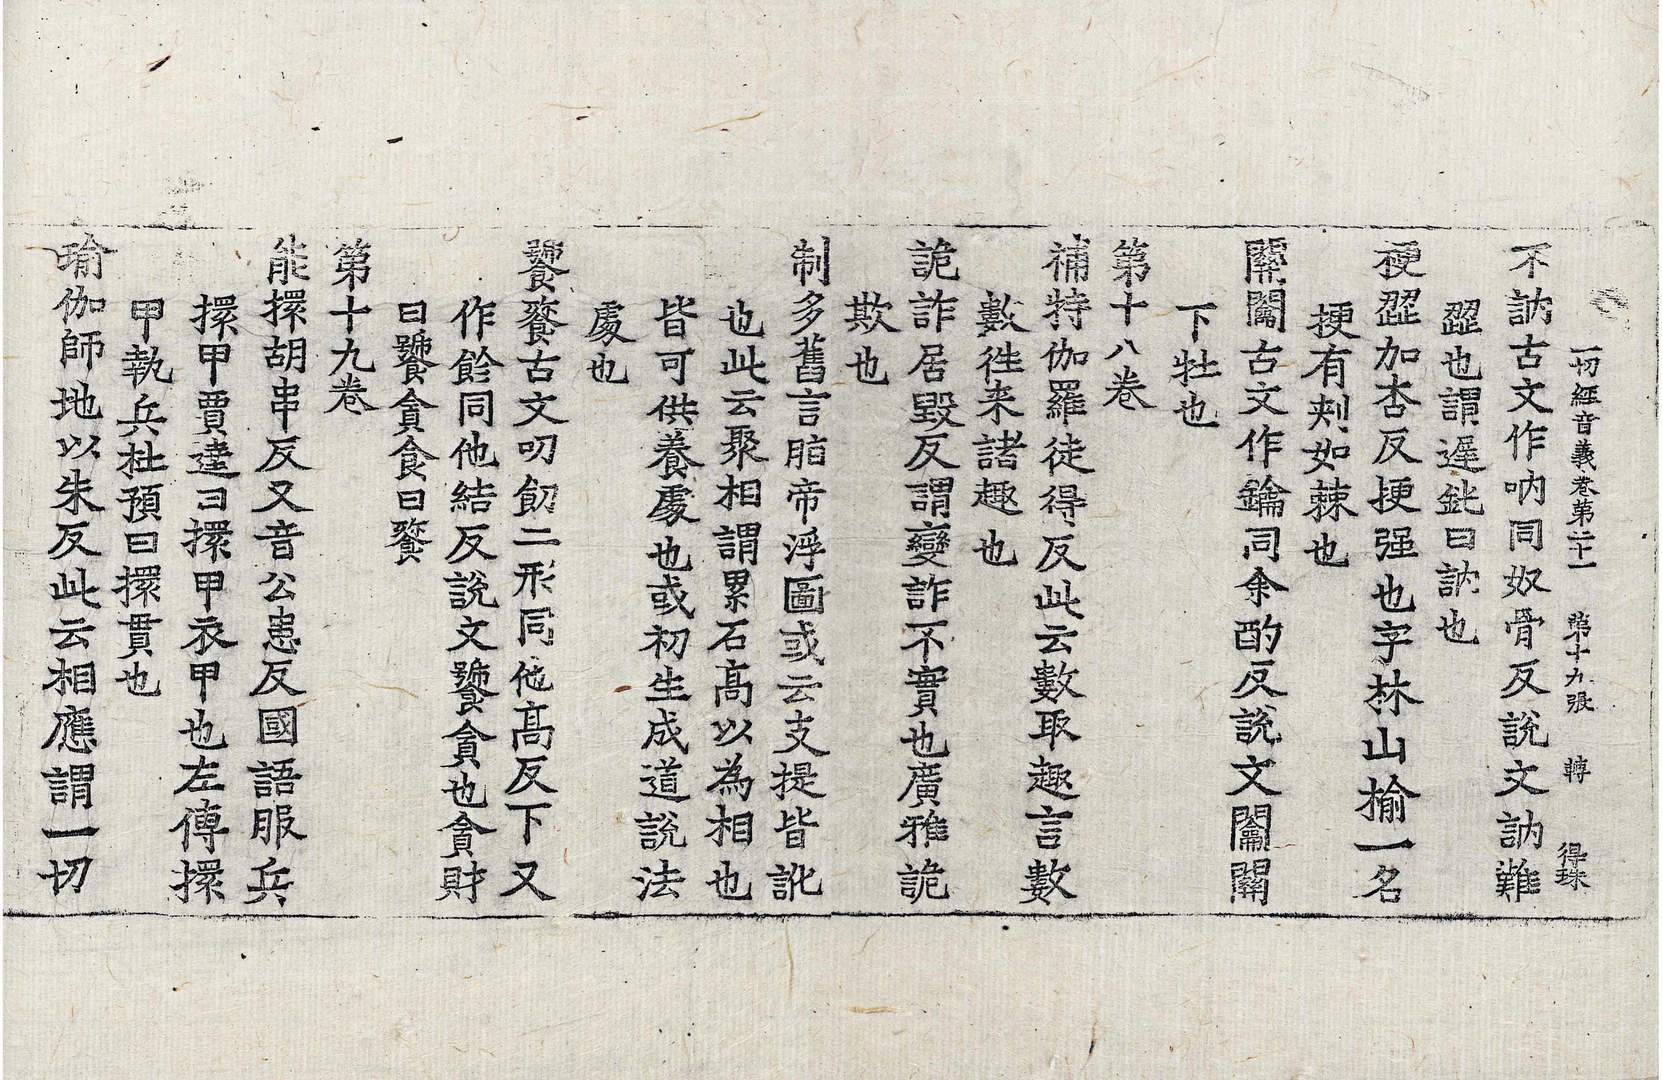 不訥古文作吶同奴骨反說文訥難
一切經音義卷第二十二 第十九張 轉 得珠
澀也謂遲鈍曰訥也
梗澀加杏反挭强也字林山榆一名
挭有刾如棘也
關闟古文作鑰同余酌反說文闟關
下牡也
第十八卷
補特伽羅徒得反此云數取趣言數
數徃来諸趣也
詭詐居毀反謂變詐不實也廣雅詭
欺也
制多舊言脂帝浮圖或云支提皆訛
也此云聚相謂累石高以為相也
皆可供養處也或初生成道說法
處也
饕餮古文叨飻二形同他高反下又
作飻同他結反說文饕貪也貪財
曰饕貪食曰餮
第十九卷
能擐胡串反又音公患反國語服兵
擐甲賈逵曰擐甲衣甲也左傳擐
甲執兵杜預曰擐貫也
瑜伽師地以朱反此云相應謂一切